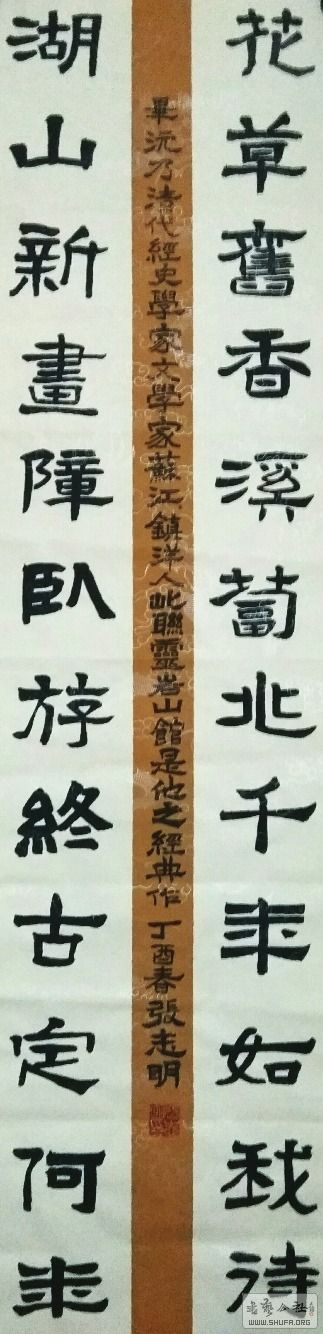 花草舊香溪蔔兆千年如我待
畢沅乃清代經史學家文學家蘇江鎮洋人此聯靈岩山館是他之經典作 丁酉春張志明
湖山新畫障臥斿終古定何年
WWW.SHUFA.ORG